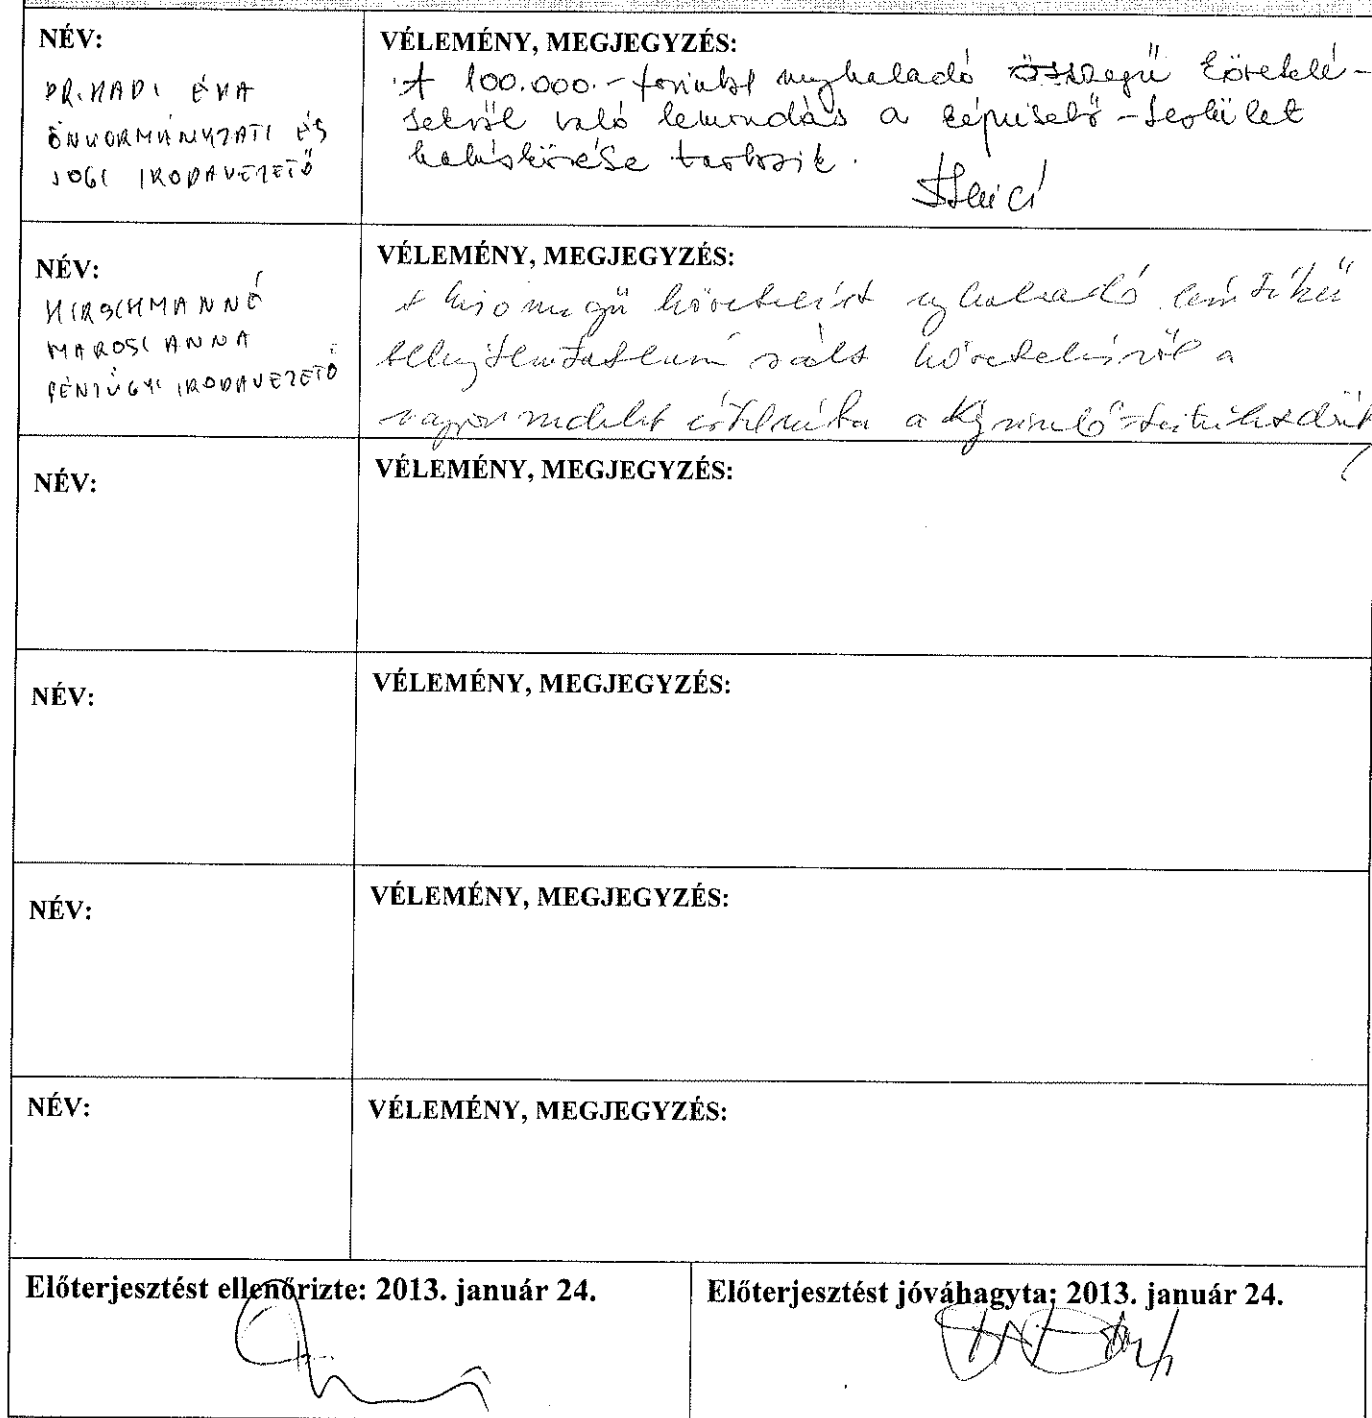 NÉV:
DR. HADI ÉVA
ÖNKORMÁNYZATI ÉS
JOGI IRODAVEZETŐ
VÉLEMÉNY, MEGJEGYZÉS:
A 100.000.- forintot meghaladó összegű követelé-
sekről való lemondás a képviselő-testület
hatáskörébe tartozik.
NÉV:
HIRSCHMANNÉ
MAROSI ANNA
PÉNZÜGYI IRODAVEZETŐ
VÉLEMÉNY, MEGJEGYZÉS:
A követelést meghaladó
vált követelésről a
vagyonrendelet értelmében a Képviselő-testület dönt
NÉV:
VÉLEMÉNY, MEGJEGYZÉS:
NÉV:
VÉLEMÉNY, MEGJEGYZÉS:
NÉV:
VÉLEMÉNY, MEGJEGYZÉS:
NÉV:
VÉLEMÉNY, MEGJEGYZÉS:
Előterjesztést ellenőrizte: 2013. január 24.
Előterjesztést jóváhagyta: 2013. január 24.